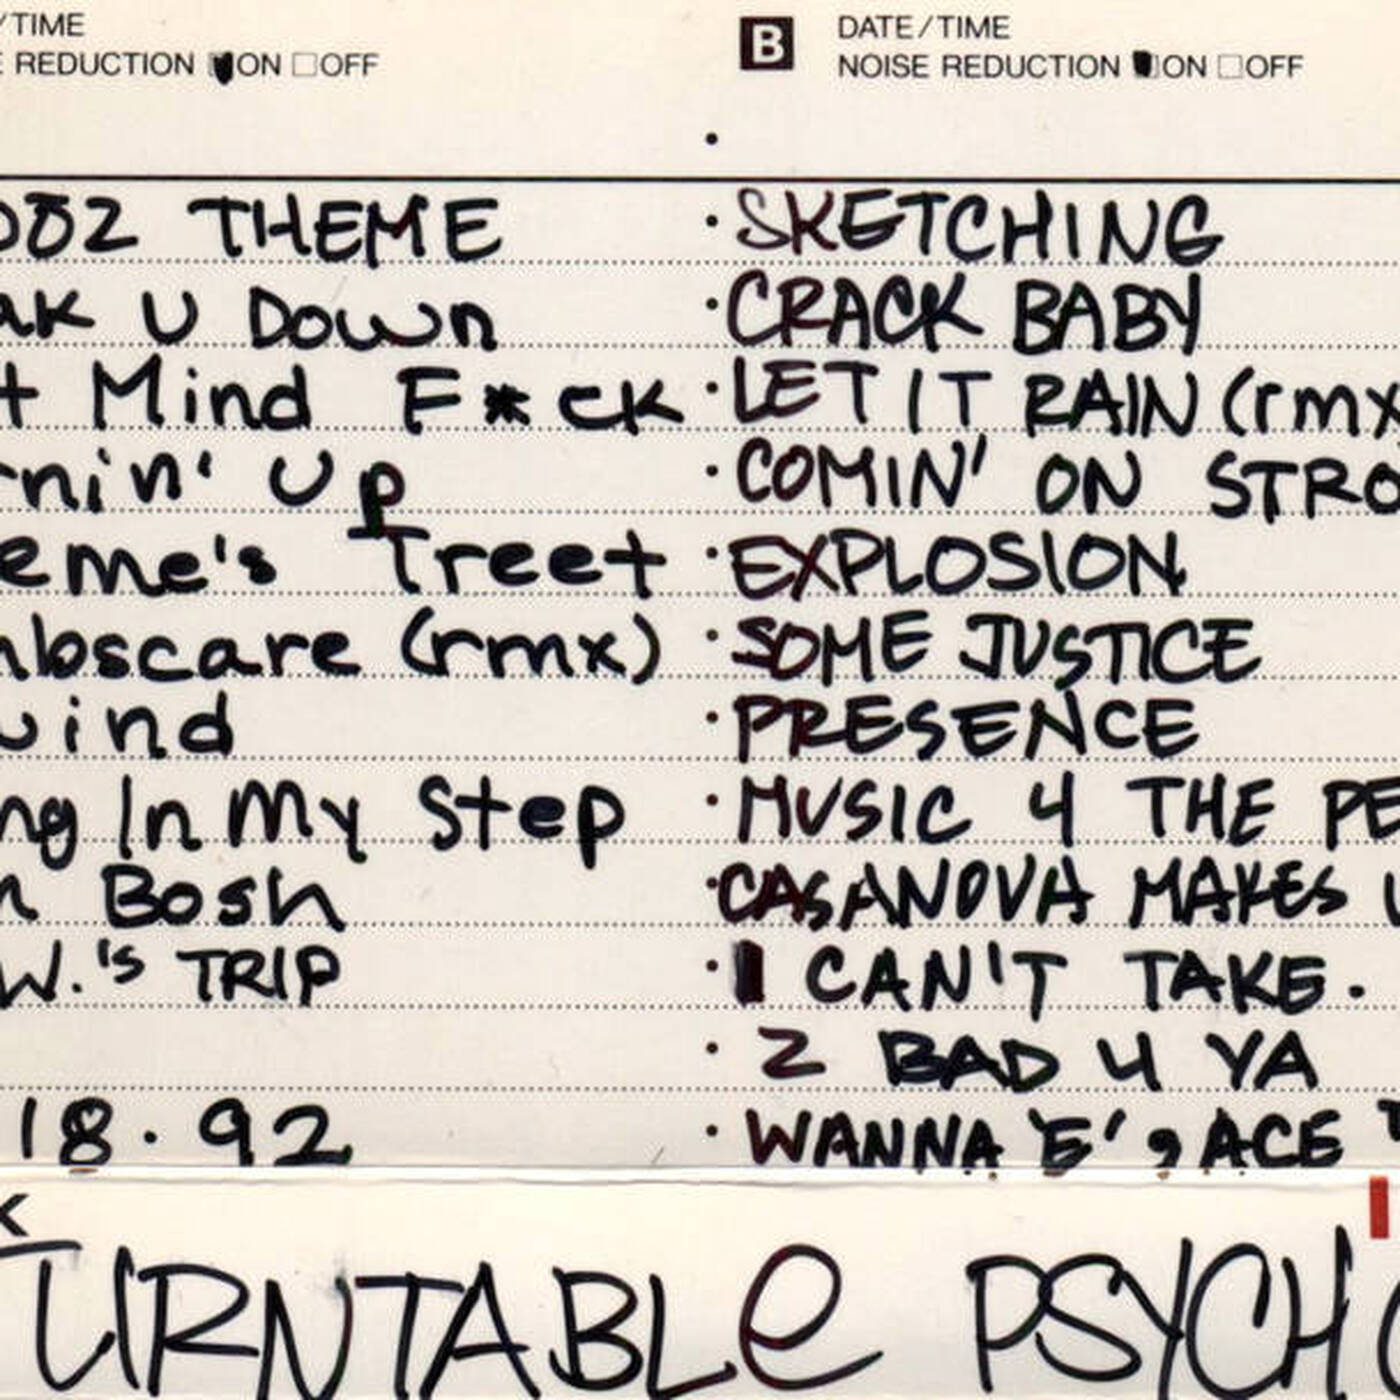 /TIME
E REDUCTION ON OFF
B DATE/TIME
NOISE REDUCTION ON OFF
002 THEME
ak U Down
t Mind F*ck
rnin' Up
eme's Treet
mbscare (rmx)
wind
ng In My Step
n Bosh
W.'s TRIP
18.92
· SKETCHING
· CRACK BABY
· LET IT RAIN (rmx
· COMIN' ON STRO
· EXPLOSION
· SOME JUSTICE
· PRESENCE
· MUSIC 4 THE PE
· CASANOVA MAKES U
· I CAN'T TAKE.
· 2 BAD 4 YA
· WANNA 'E', ACE
TURNTABLe PSYCHO